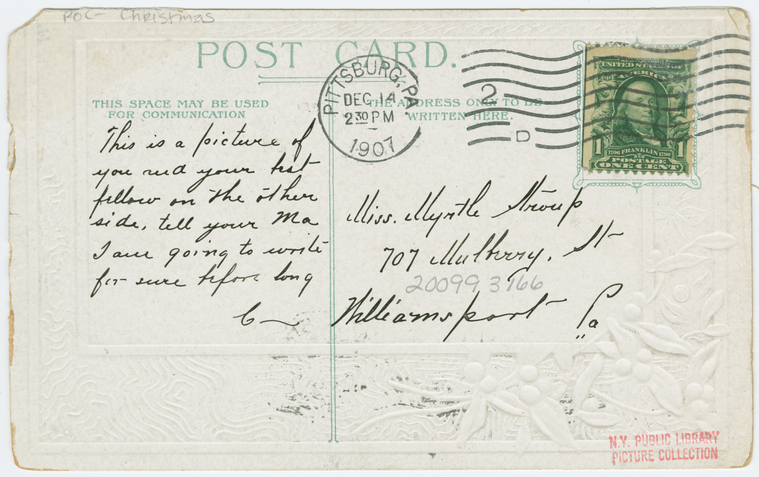 POC Christmas
POST CARD.
THIS SPACE MAY BE USED
FOR COMMUNICATION
THE ADDRESS ONLY TO BE
WRITTEN HERE.
PITTSBURG, PA.
DEC 14
2 30 PM
1907
2
D
UNITED STATES
OF AMERICA
1 1
1706 FRANKLIN 1790
POSTAGE
ONE CENT
This is a picture of
you and your best
fellow on the other
side, tell your Ma
I am going to write
for sure before long
C—
Miss. Myrtle Stroup
707 Mulberry, St
20099 3766
Williamsport Pa
N.Y. PUBLIC LIBRARY
PICTURE COLLECTION